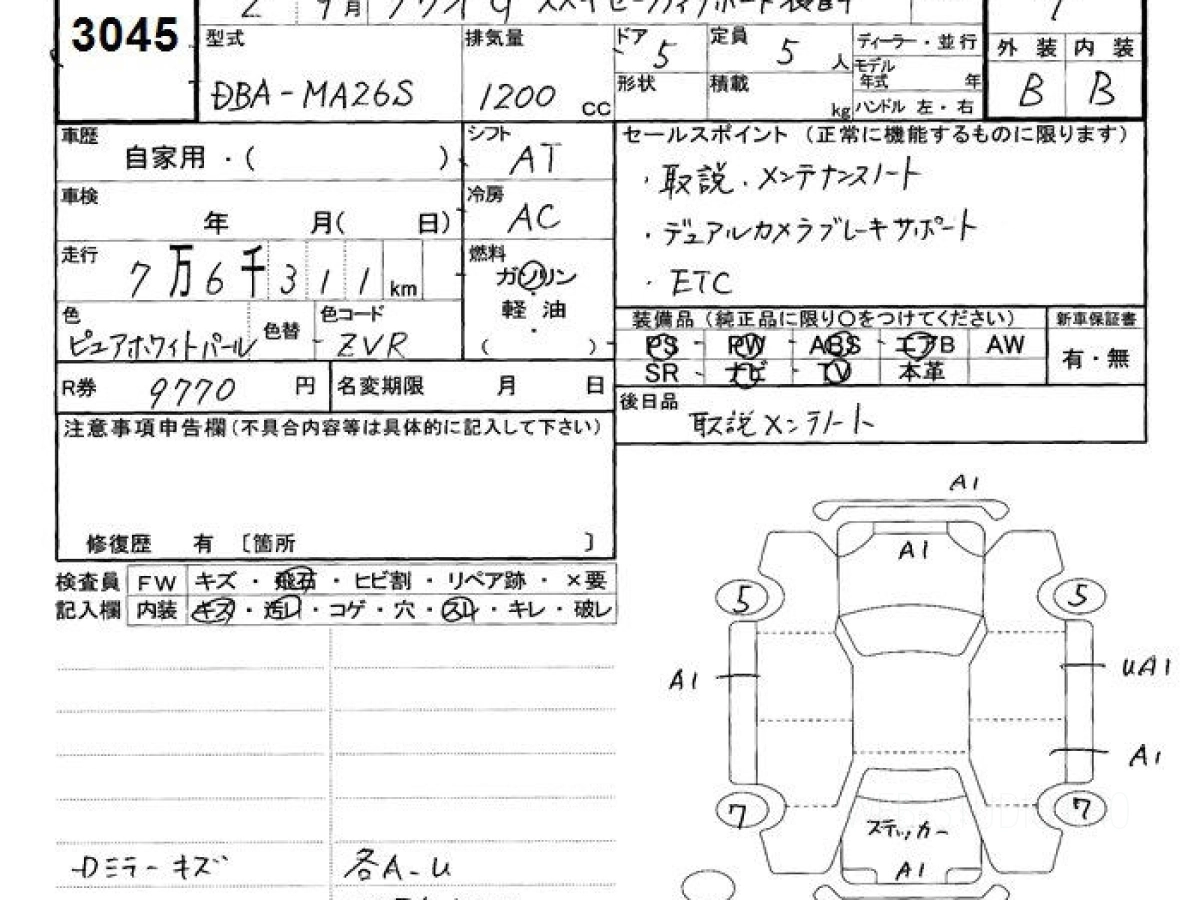 2 9月
3045
型式 DBA-MA26S
排気量 1200 CC
ドア 5
定員 5 人
ディーラー・並行
モデル年式 年
形状
積載 kg
ハンドル 左・右
外装 内装
B B
車歴 自家用・( )
シフト AT
車検 年 月( 日)
冷房 AC
走行 7万6千311km
燃料 ガソリン
軽油
( )
色 ピュアホワイトパール
色替
色コード ZVR
R券 9770 円
名変期限 月 日
セールスポイント (正常に機能するものに限ります)
・取説・メンテナンスノート
・デュアルカメラブレーキサポート
・ETC
装備品(純正品に限り○をつけてください)
新車保証書
PS PW ABS エアB AW
有・無
SR ナビ TV 本革
後日品 取説メンテノート
注意事項申告欄(不具合内容等は具体的に記入して下さい)
修復歴 有 〔箇所 〕
検査員 FW キズ・飛石・ヒビ割・リペア跡・×要
記入欄 内装 キズ・汚レ・コゲ・穴・スレ・キレ・破レ
Dミラーキズ
各A-U
A1
A1
5 5
A1 UA1
A1
7 7
ステッカー
A1